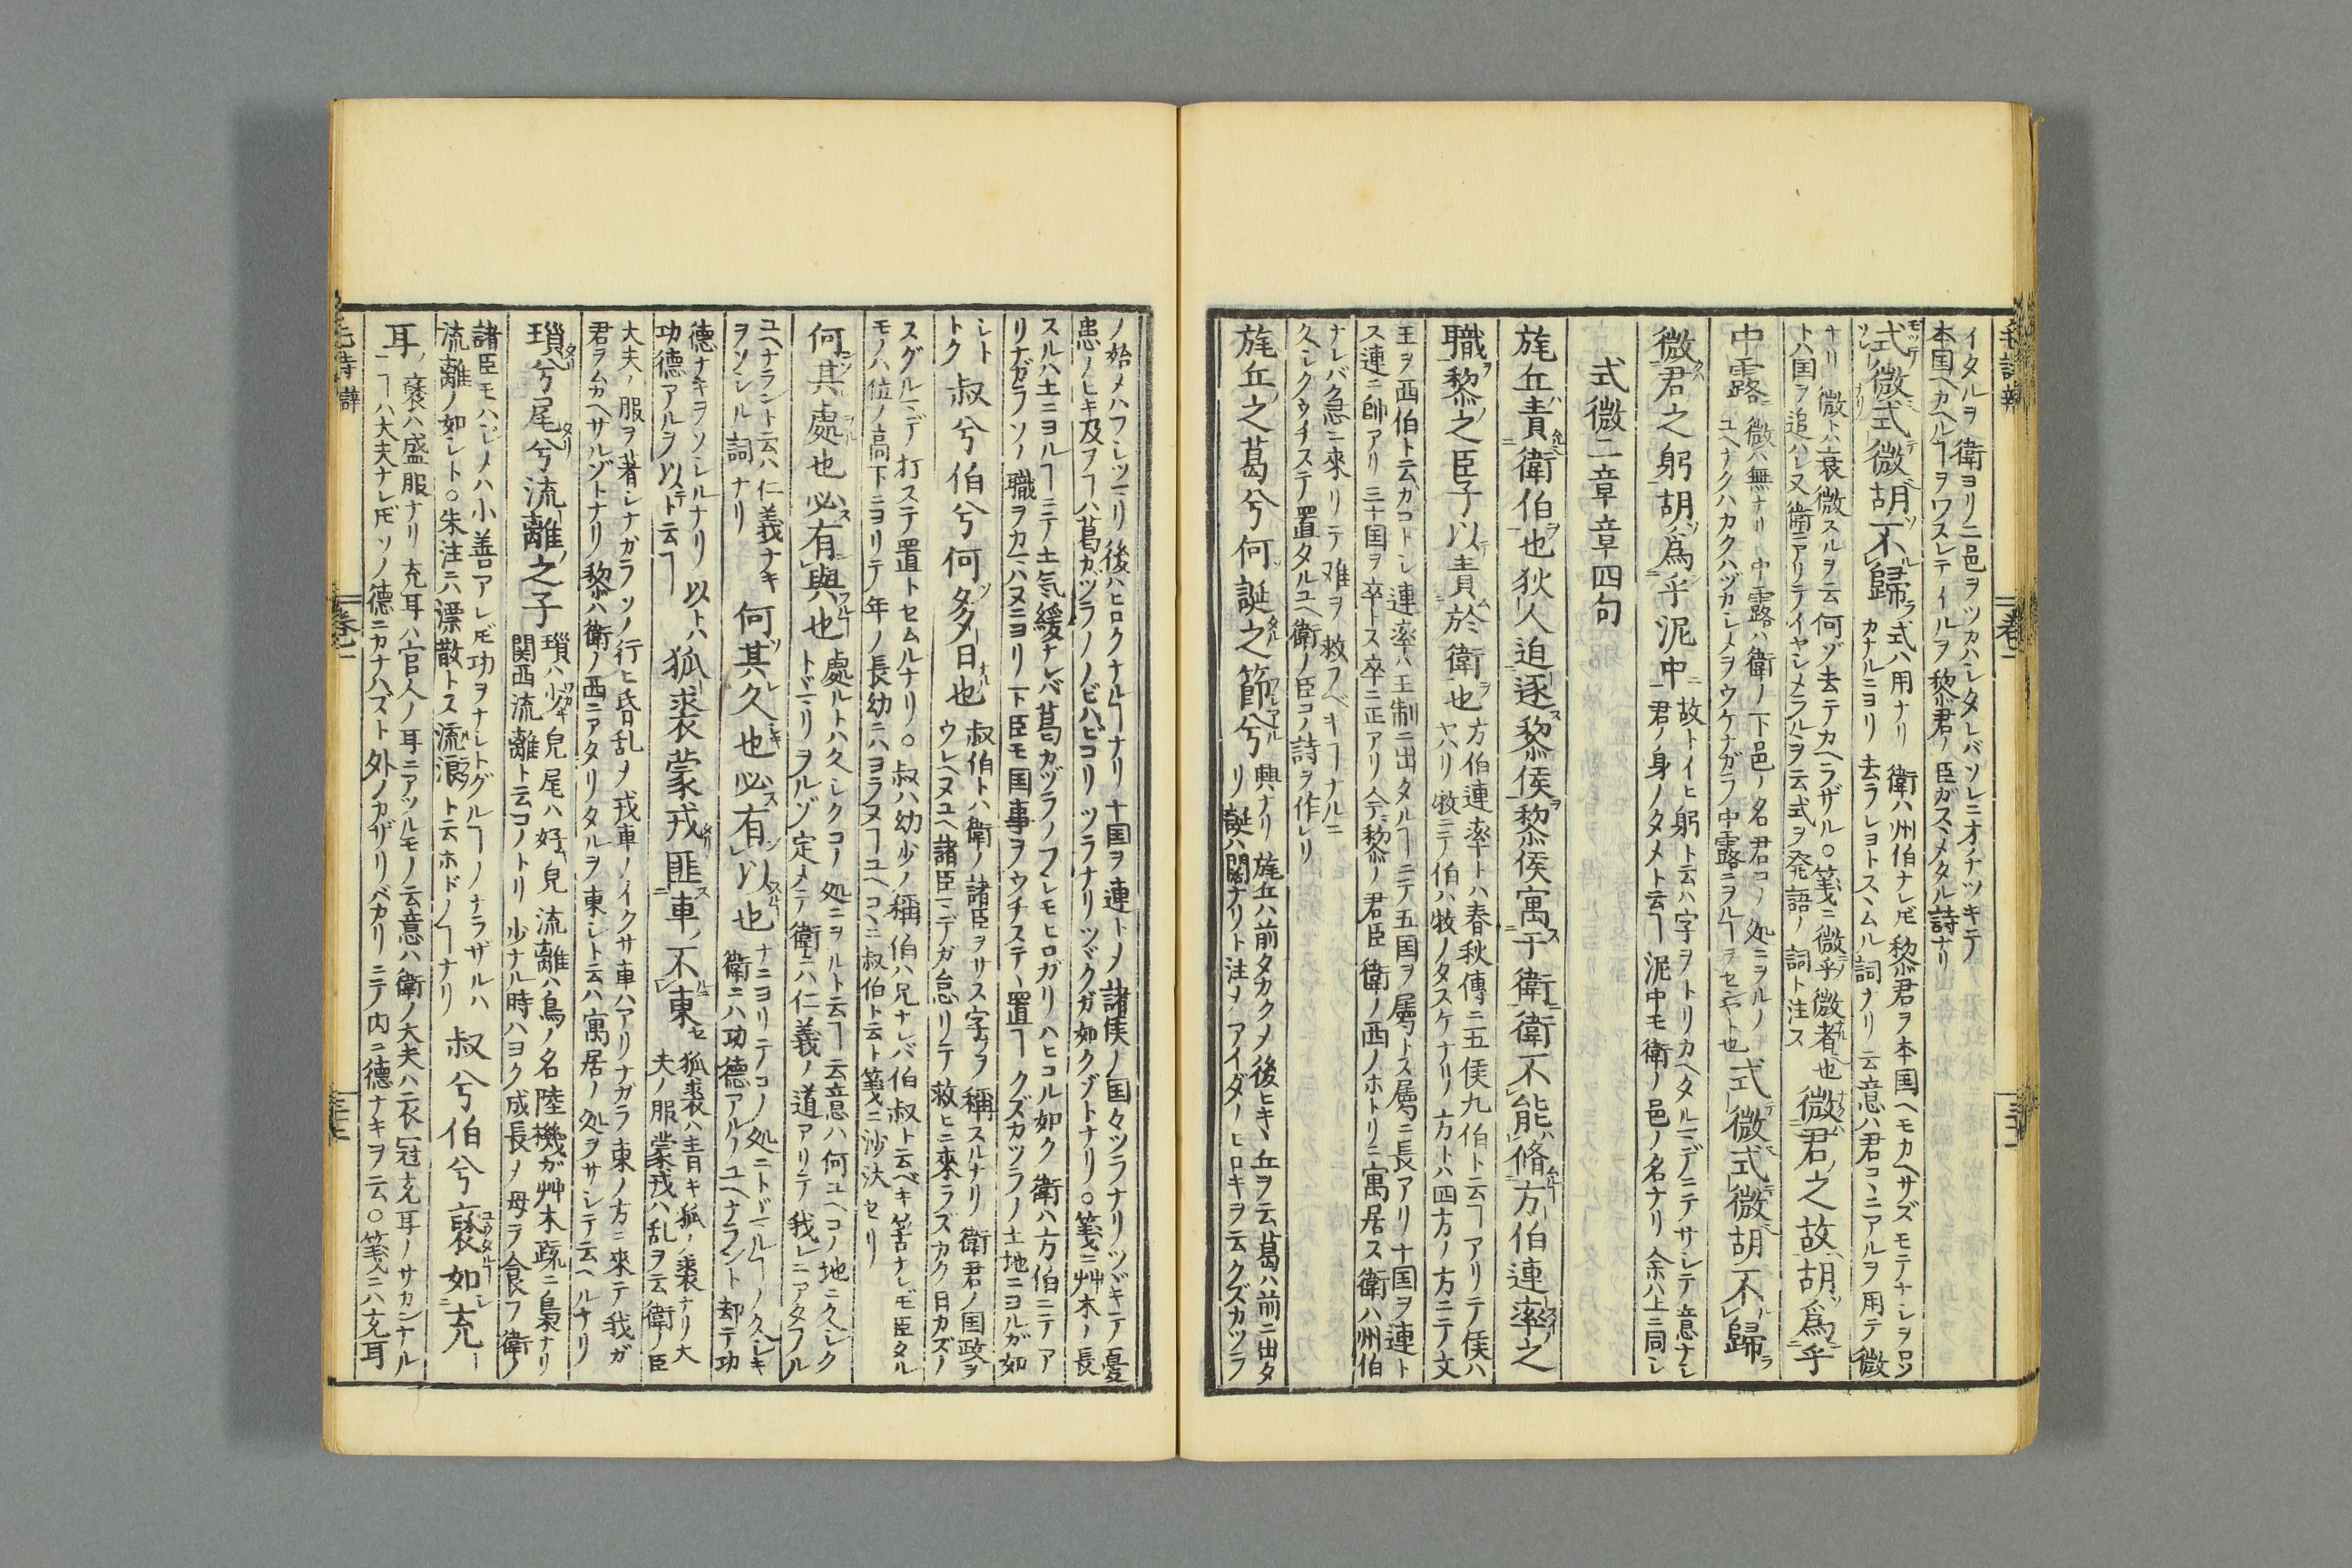 イタルヲ衛ヨリ二邑ヲツカハシタレバソレニオチツキテ
本国ヘカヘルヿヲワスレテイルヲ黎君ノ臣ガスヽメタル詩ナリ
式微式微胡不歸
式ハ用ナリ 衛ハ州伯ナレ𪜈黎君ヲ本国ヘモカヘサズモテナシヲロソ
カナルニヨリ去ラレヨトスヽムル詞ナリ云意ハ君コヽニアルヲ用テ微
ナリ 微トハ衰微スルヲ云何ゾ去テカヘラザル○箋ニ微乎微者也
トハ国ヲ追ハレ又衛ニアリテイヤシメラルヲ云式ヲ発語ノ詞ト注ス
微君之故胡爲乎
中露
微ハ無ナリ 中露ハ衛ノ下邑ノ名君コノ処ニヲルノ
ユヘナクハカクハヅカシメヲウケナガラ中露ニヲルヿヲセンヤト也
式微式微胡不歸
微君之躬胡爲乎泥中
故トイヒ躬ト云ハ字ヲトリカヘタルマデニテサシテ意ナシ
君ノ身ノタメト云ヿ 泥中モ衛ノ邑ノ名ナリ 余ハ上ニ同シ
式微二章章四句
旄丘責衛伯也狄人迫逐黎侯黎侯寓于衛衛不能脩方伯連率之
職黎之臣子以責於衛也
方伯連率トハ春秋傳ニ五侯九伯ト云ヿアリテ侯ハ
ヤハリ牧ニテ伯ハ牧ノタスケナリ方トハ四方ノ方ニテ文
王ヲ西伯ト云ガコトシ連率ハ王制ニ出タルヿニテ五国ヲ屬トス屬ニ長アリ十国ヲ連ト
ス連ニ帥アリ三十国ヲ卒トス卒ニ正アリ今黎ノ君臣衛ノ西ノホトリニ寓居ス衛ハ州伯
ナレバ急ニ來リテ难ヲ救フベキヿナルニ
久シクウチステ置タルユヘ衛ノ臣コノ詩ヲ作レリ
旄丘之葛兮何誕之節兮
興ナリ 旄丘ハ前タカクメ後ヒキヽ丘ヲ云葛ハ前ニ出タ
リ 誕ハ闊ナリト注メアイダノヒロキヲ云クズカツラ
ノ始メハフレツマリ後ハヒロクナルヿナリ十国ヲ連トメ諸侯ノ国々ツラナリツヾキテ憂
患ノヒキ及ヲヿハ葛カツラノノビハビコリツラナリツヾクガ如クゾトナリ○箋ニ艸木ノ長
スルハ土ニヨルヿニテ土気緩ナレバ葛カヅラノフレモヒロガリハヒコル如ク衛ハ方伯ニテア
リナガラソノ職ヲカマハヌニヨリ下臣モ国事ヲウチステヽ置ヿクズカツラノ土地ニヨルガ如
シト
トク
叔兮伯兮何多日也
叔伯トハ衛ノ諸臣ヲサス字ヲ稱スルナリ 衛君ノ国政ヲ
ウレヘヌユヘ諸臣マデガ怠リテ救ヒニ來ラズカク日カズノ
スグルマデ打ステ置トセムルナリ○叔ハ幼少ノ稱伯ハ兄ナレバ伯叔ト云ベキ筈ナレ𪜈臣タル
モノハ位ノ高下ニヨリテ年ノ長幼ニハヨラヌヿユヘコヽニ叔伯ト云ト箋ニ沙汰セリ
何其處也必有與也
處ルトハ久シクコノ処ニヲルト云ヿ云意ハ何ユヘコノ地ニ久シク
トヾマリヲルゾ定メテ衛ニハ仁義ノ道アリテ我レニアタフル
ユヘナラント云ハ仁義ナキ
ヲソシル詞ナリ
何其久也必有以也
ナニヨリテコノ処ニトヾマルヿノ久シキ
衛ニハ功德アルノユヘナラント却テ功
德ナキヲソシルナリ 以トハ
功德アルヲ以テト云ヿ
狐裘蒙戎匪車不東
狐裘ハ青キ狐ノ裘ナリ大
夫ノ服蒙戎ハ乱ヲ云衛ノ臣
大夫ノ服ヲ著シナガラソノ行ヒ昏乱メ戎車ノイクサ車ハアリナガラ東ノ方ニ來テ我ガ
君ヲムカヘサルゾトナリ黎ハ衛ノ西ニアタリタルヲ東シト云ハ寓居ノ処ヲサシテ云ヘルナリ
瑣兮尾兮流離之子
瑣ハ少キ皃尾ハ好皃 流離ハ鳥ノ名陸機ガ艸木疏ニ梟ナリ
関西流離ト云コノトリ少ナル時ハヨク成長メ母ヲ食フ衛ノ
諸臣モハジメハ小善アレ𪜈功ヲナシトグルヿノナラザルハ
流離ノ如シト○朱注ニハ漂散トス流浪ト云ホドノヿナリ
叔兮伯兮褎如充
耳
褎ハ盛服ナリ 充耳ハ官人ノ耳ニアツルモノ云意ハ衛ノ大夫ハ衣冠充耳ノサカンナル
ヿハ大夫ナレ𪜈ソノ德ニカナハズト外ノカザリバカリニテ内ニ德ナキヲ云○箋ニハ充耳
毛詩辯 卷一